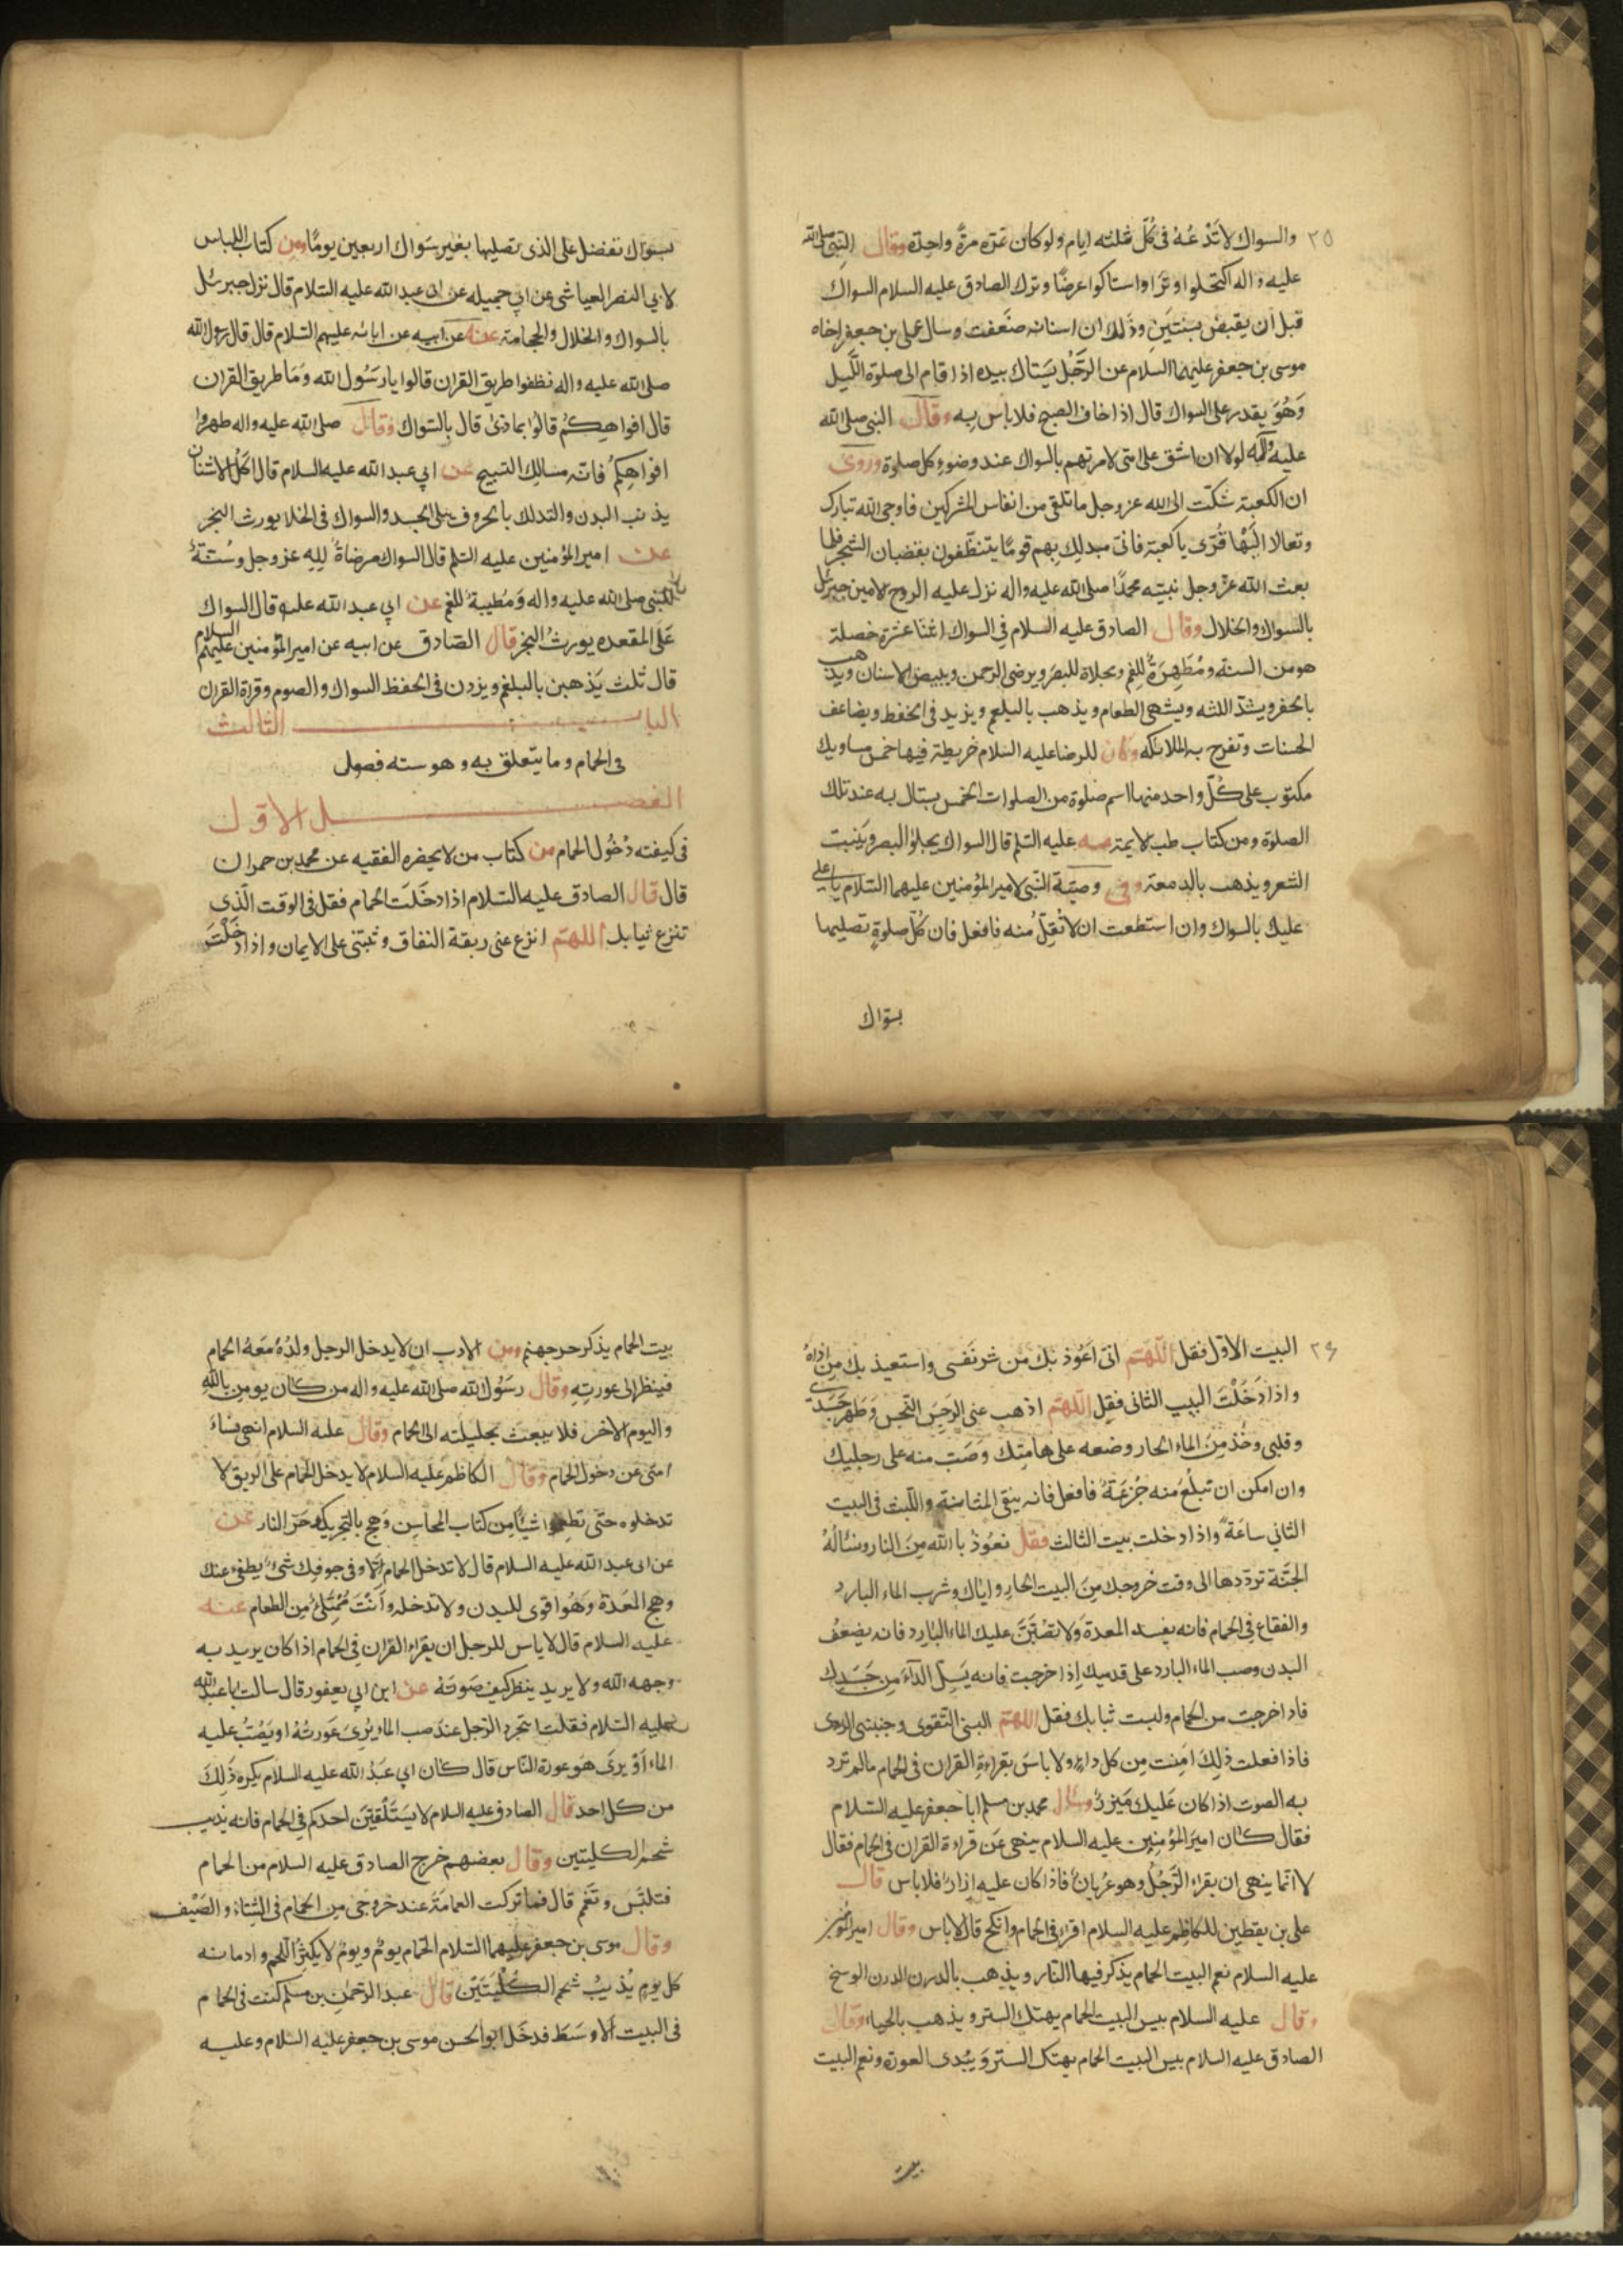 ٢٥
والسواك لا تَدْعُهُ فى كُلّ ثلثه ايام ولو كان تمره مرةً واحدة وقال النبى صلى الله
عليه واله اكتحلوا وترًا واستاكوا عرضًا وترك الصادق عليه السلام السواك
قبل ان يقبض بسنتَينِ وذٰلك ان اسنانه ضَعفت وسال على بن جعفر اخاه
موسى بن جعفر عليهما السلام عن الرَّجُل يَستاك بيده اذا قام الى صلوة اللَّيل
وَهُوَ يقدر على السواك قال اذا خاف الصبح فلا باس به وقال النبى صلى الله
عليه وآله لولا ان اشق على امتى لامرتهم بالسواك عند وضوء كل صلوة وروى
ان الكعبة شكت الى الله عز وجل ما تلقى من انفاس المشركين فاوحى الله تبارك
وتعالا الَيْهَا قُرّى يا كعبة فانى مبدلكِ بهم قومًا يتنظّفون بقضبان الشجر فلما
بعث الله عز وجل نبيته محمدًا صلى الله عليه واله نزل عليه الروح الامين جبرئل
بالسواك والخلال وقال الصادق عليه السلام فى السواك اثنا عشرة خصلة
هو من السنة ومُطَهِرَةٌ للفم ومجلاة للبصر ويرضى الرحمن ويبيض الاسنان ويذهب
بالحفر ويشدّ اللثه ويشهى الطعام ويذهب بالبلغم ويزيد فى الحفظ ويضاعف
الحسنات وتفرح به الملائكه وكان للرضا عليه السلام خريطة فيها خمس مساويك
مكتوب على كُلّ واحد منها اسم صلوة من الصلوات الخمس يستاك به عند تلك
الصلوة ومن كتاب طب الايمة عنه عليه السلم قال السواك يجلوا البصر ويَنبت
الشعر ويذهب بالدمعة وفى وصيّة النّبى لامير المؤمنين عليهما السّلام يا على
عليك بالسواك وان استطعت ان لا تُقِلّ منه فافعل فان كُلّ صلوةٍ تصليها
بسواك
بسواك تفضل على الذى تصليها بغير سَواك اربعين يومًا ومن كتاب اللباس
لابى النصر العياشى عن ابى جميله عن ابى عبد الله عليه السّلام قال نزل جبرئل
بالسواك والخلال والحجامة عنه عن ابيه عن ابائه عليهم السّلام قال قال رسول الله
صلى الله عليه واله نظفوا طريق القران قالوا يا رَسُول الله وَمَا طريق القران
قال افواهكُم قالوا بماذى قال بالسّواك وقال صلى الله عليه واله طهروا
افواهِكُم فانّه مسالك التسبيح عن ابي عبد الله عليه السلام قال اكلُ الاشنان
يذيب البدن والتدلك بالخروف يبلى الجسد والسواك فى الخلا يورث البخر
عن امير المؤمنين عليه السّلم قال السواك مرضاةٌ لِلِه عز وجل وسُنّةٌ
للنّبى صلى الله عليه واله وَمُطيبةٌ للفم عن ابي عبد الله عليه قال السواك
عَلى المقعده يورثُ البخر قال الصّادق عن ابيه عن امير المؤمنين عليهم السلام
قال ثلث يَذهبن بالبلغم ويزدن فى الحفظ السواك والصوم وقراة القران
الباب الثالث
فى الحمام وما يتعلق به وهو سته فصول
الفصل الاول
فى كيفته دُخُول الحمام من كتاب من لا يحضره الفقيه عن محمد بن حمران
قال قال الصادق عليه السّلام اذا دخَلت الحمام فقل فى الوقت الّذى
تنزع ثيابك اللهم انزع عنى ربقة النفاق وثبتنى على الايمان واذا دَخَلْتَ
٢٦
البيت الاوّل فقل اللّهمّ انّى اَعُوذ بك من شر نَفسى واستعيذ بك من اذاهُ
واذا دَخَلْتَ البيب الثانى فقل اللّهمّ اذهب عنى الرجِسَ النّجس وَطَهر جَسَدى
وقلبى وخذ مِنَ الماء الحار وضعه على هامتِك وَصَبّ منه على رجليك
وان امكن ان تبلُعَ منه جُرْعَةً فافعل فانه ينقى المثانة واللّبث فى البيت
الثاني ساعَةً واذا دخلت بيت الثالث فقل نعُوذ بالله مِنَ النار ونسالُهُ
الجنّة تردّدها الى وقت خروجك مِنَ البيت الحار واياك وشرب الماء البارد
والفقاع فِى الحمام فانه يفسد المعدة وَلا تصُبَّنّ عليك الماء البارد فانه يضعفُ
البدن وصب الماء البارد على قدميك اِذا خرجت فانه يَسِلّ الدآءَ مِن جَسَدك
فاذا خرجت من الحمام ولبست ثيابك فقل اللهمّ البسنى التّقوى وجنبنى الردى
فاذا فعلت ذٰلِكَ امِنت مِن كل داءٍ ولا باسَ بقراءةِ القران فى الحمام مالم ترد
به الصوت اذا كان عَليك مَيزرٌ وسال محمد بن مسلم ابا جعفر عليه السّلام
فقال كان امير المؤمنين عليه السلام ينهى عَن قراءة القران فى الحمام فقال
لا انّما ينهى ان يقراء الرَّجُلُ وهو عُريانٌ فاذا كان عليه اِزارٌ فلا باس قال
على بن يقطين للكاظِم عليه السلام اقرا فى الحمام وانكح قال لا باس وقال امير المؤمنين
عليه السلام نعم البيت الحمام يذكر فيها النّار ويذهب بالدرن الدرن الوسخ
وقال عليه السلام بيس البيت الحمام يهتك الستر ويذهب بالحياء وقال
الصادق عليه السلام بيس البيت الحمام يهتك الستر وَيبُدى العورة ونعم البيت
بيت
بيت الحمام يذكر حر جهنم ومن الادب ان لا يدخل الرجل ولدُهُ مَعَهُ الحمام
فينظر الى عورتِهِ وقال رسَوُل الله صلى الله عليه واله من كان يومن بالله
واليوم الاخر فلا يبعث بحليلته الى الحمام وقال عليه السلام انهى نساءَ
امتى عن دخول الحمام وقال الكاظم عليه السلام لا يدخل الحمام على الريق لا
تدخلوه حتّى تطعموا شيئًا مِن كتاب المحاسن وَهج بالتحريك حَرّ النار عن
عن ابى عبد الله عليه السلام قال لا تدخل الحمام الّا وفى جوفِك شئ يطفى عنك
وهج المَعَدة وَهُوا قوى للبدن ولا تدخله وَاَنْتَ مُمْتَلئٌ مِن الطعام عنه
عليه السلام قال لا باس للرجل ان يقراء القران فى الحمام اذا كان يريد به
وجهه الله ولا يريد ينظر كيف صَوتهَ عن ابن ابي يعفور قال سالت ابا عبد الله
عليه السّلام فقلت ايتجرد الرّجل عند صب الماء يُرىَ عَورتُهُ اويَصُبّ عليه
الماء اَوْ يرىَ هو عورة النّاس قال كان ابي عَبدُ الله عليه السلام يكره ذٰلِكَ
من كل احد قال الصادق عليه السلام لا يَستَلْقيَنّ احدكم فى الحمام فانه يذيب
شحم الكليتين وقال بعضهم خرج الصادق عليه السلام من الحمام
فتلبّس وتَعّم قال فما تركت العمامَةَ عند خروجى من الحمام فى الشِتاءْ والصَيْف
وقال موسى بن جعفر عليهما السّلام الحَمام يومٌ ويومٌ لا يكثِرُ اللّحم وادمانه
كل يومٍ يُذيبُ شحم الكُلْيَتَين قال عبد الرّحمٰن بن مسلم كنت فى الحمام
فى البيت اَلاوسَط فدخَل ابو الحسن موسى بن جعفر عليه السلام وعليه